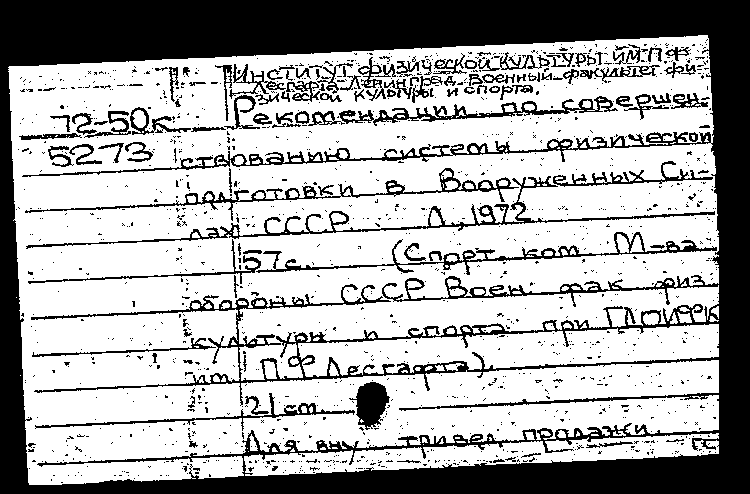 Институт физической культуры им. П.Ф.
Лесгафта Ленинград. Военный факультет фи-
зической культуры и спорта.
72-50к Рекомендации по совершен-
5273 ствованию системы физической
подготовки в Вооруженных Си-
лах СССР. Л., 1972.
57с. (Спорт. ком. М-ва
обороны СССР. Воен. фак. физ.
культуры и спорта при ГДОИФК
им. П.Ф. Лесгафта).
21 cm.
Для вну тривед. продажи.